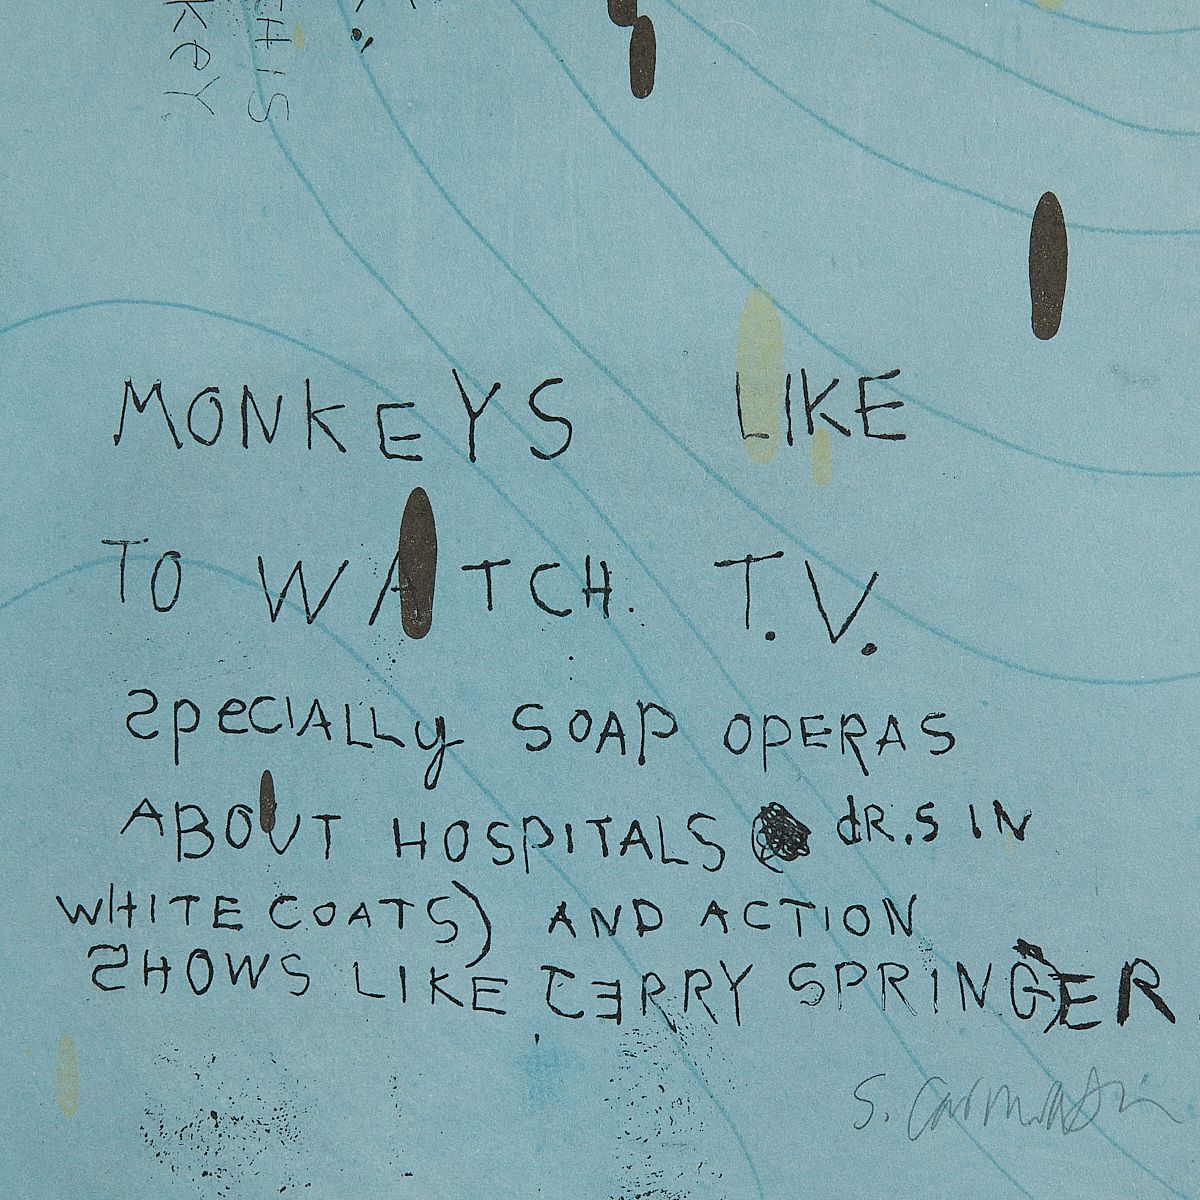 THIS
KEY
MONKEYS LIKE
TO WATCH. T.V.
SpeCIALLy SOAP OPERAS
ABOUT HOSPITALS dR.S IN
WHITE COATS) AND ACTION
SHOWS LIKE JERRY SPRINGER
S.